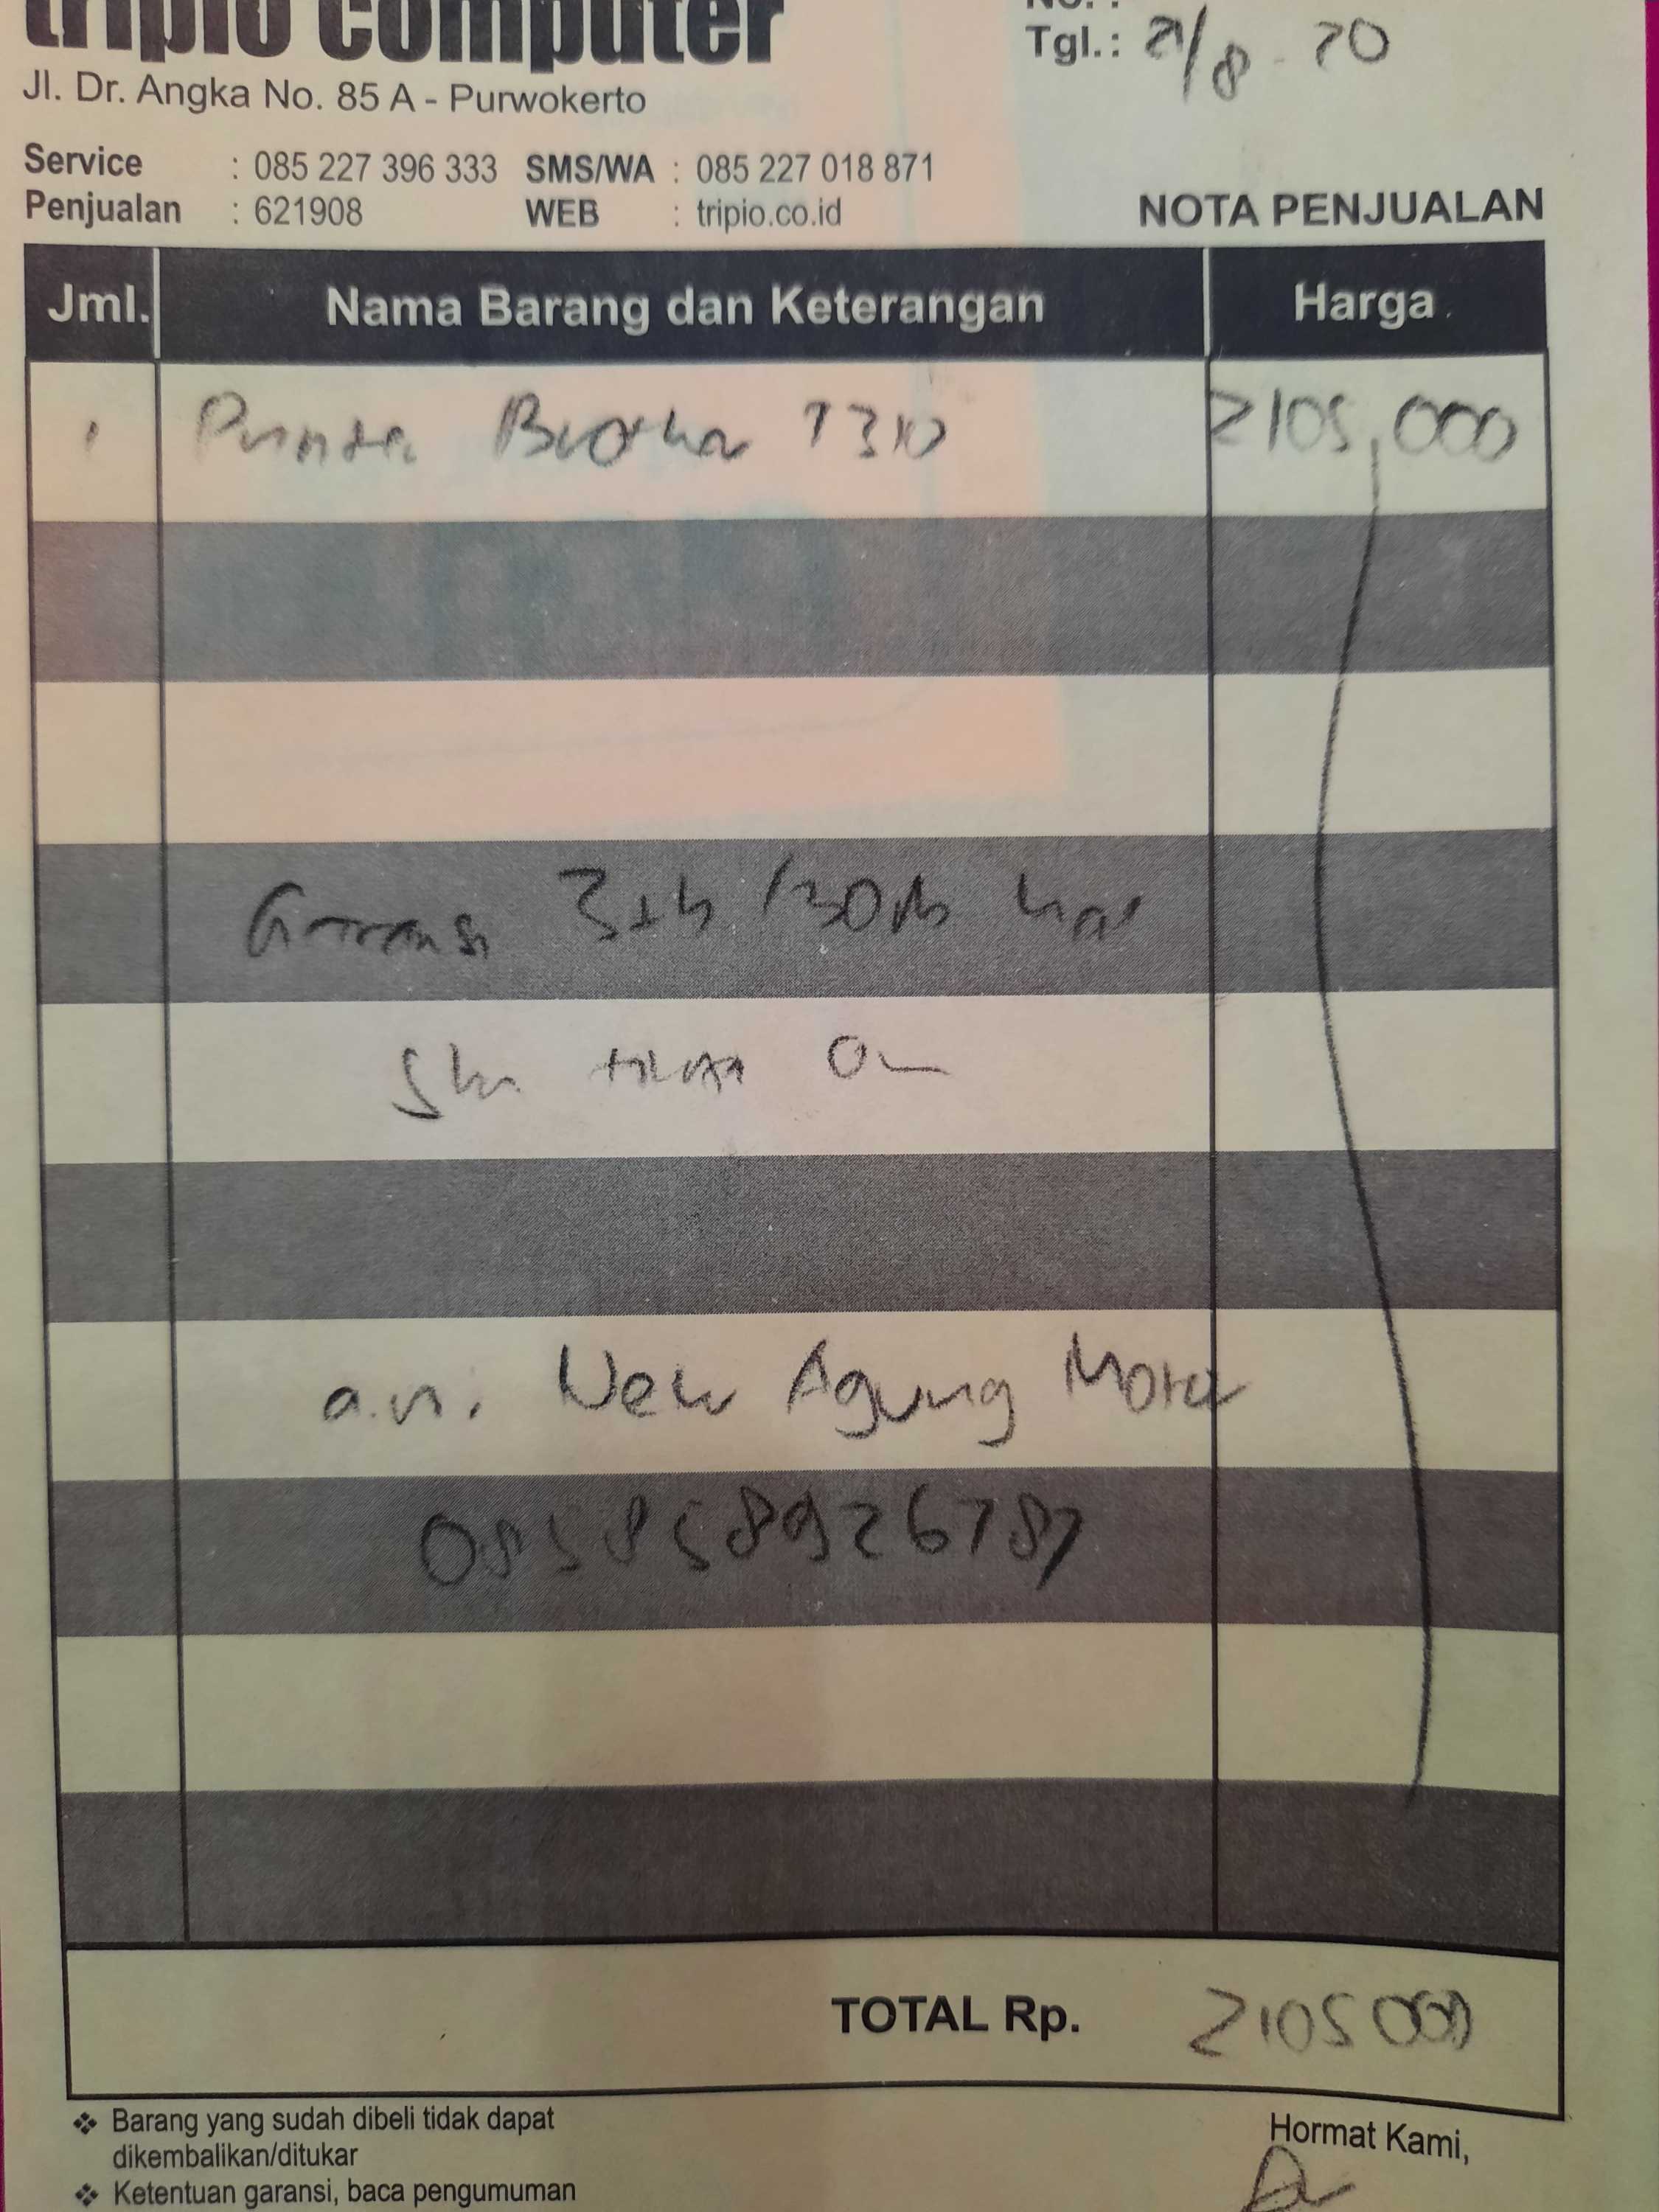 tripio computer
No. :
Tgl.: 21/8 - 20
Jl. Dr. Angka No. 85 A - Purwokerto
Service : 085 227 396 333 SMS/WA : 085 227 018 871
Penjualan : 621908 WEB : tripio.co.id
NOTA PENJUALAN
Jml. Nama Barang dan Keterangan Harga
1 Printer Brother T310 2105,000
Garansi 3th /30rb
a.n. New Agung Motor
085858926787
TOTAL Rp. 2105000
Barang yang sudah dibeli tidak dapat
dikembalikan/ditukar
Ketentuan garansi, baca pengumuman
Hormat Kami,